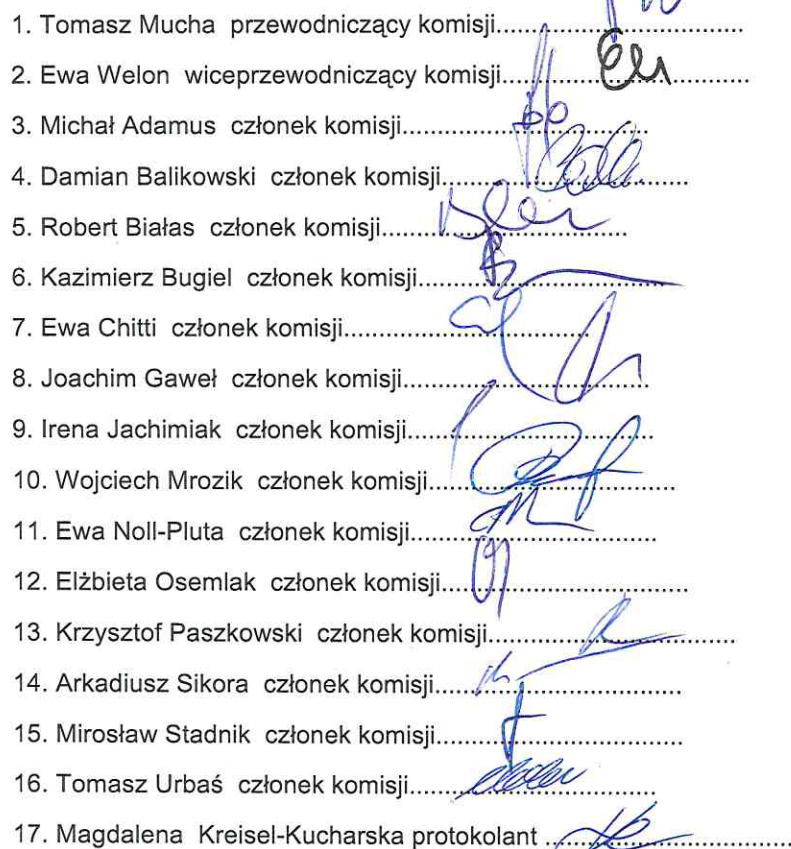 1. Tomasz Mucha przewodniczący komisji..............................
2. Ewa Welon wiceprzewodniczący komisji..............................
3. Michał Adamus członek komisji..............................
4. Damian Balikowski członek komisji..............................
5. Robert Białas członek komisji..............................
6. Kazimierz Bugiel członek komisji..............................
7. Ewa Chitti członek komisji..............................
8. Joachim Gaweł członek komisji..............................
9. Irena Jachimiak członek komisji..............................
10. Wojciech Mrozik członek komisji..............................
11. Ewa Noll-Pluta członek komisji..............................
12. Elżbieta Osemlak członek komisji..............................
13. Krzysztof Paszkowski członek komisji..............................
14. Arkadiusz Sikora członek komisji..............................
15. Mirosław Stadnik członek komisji..............................
16. Tomasz Urbaś członek komisji..............................
17. Magdalena Kreisel-Kucharska protokolant ..............................